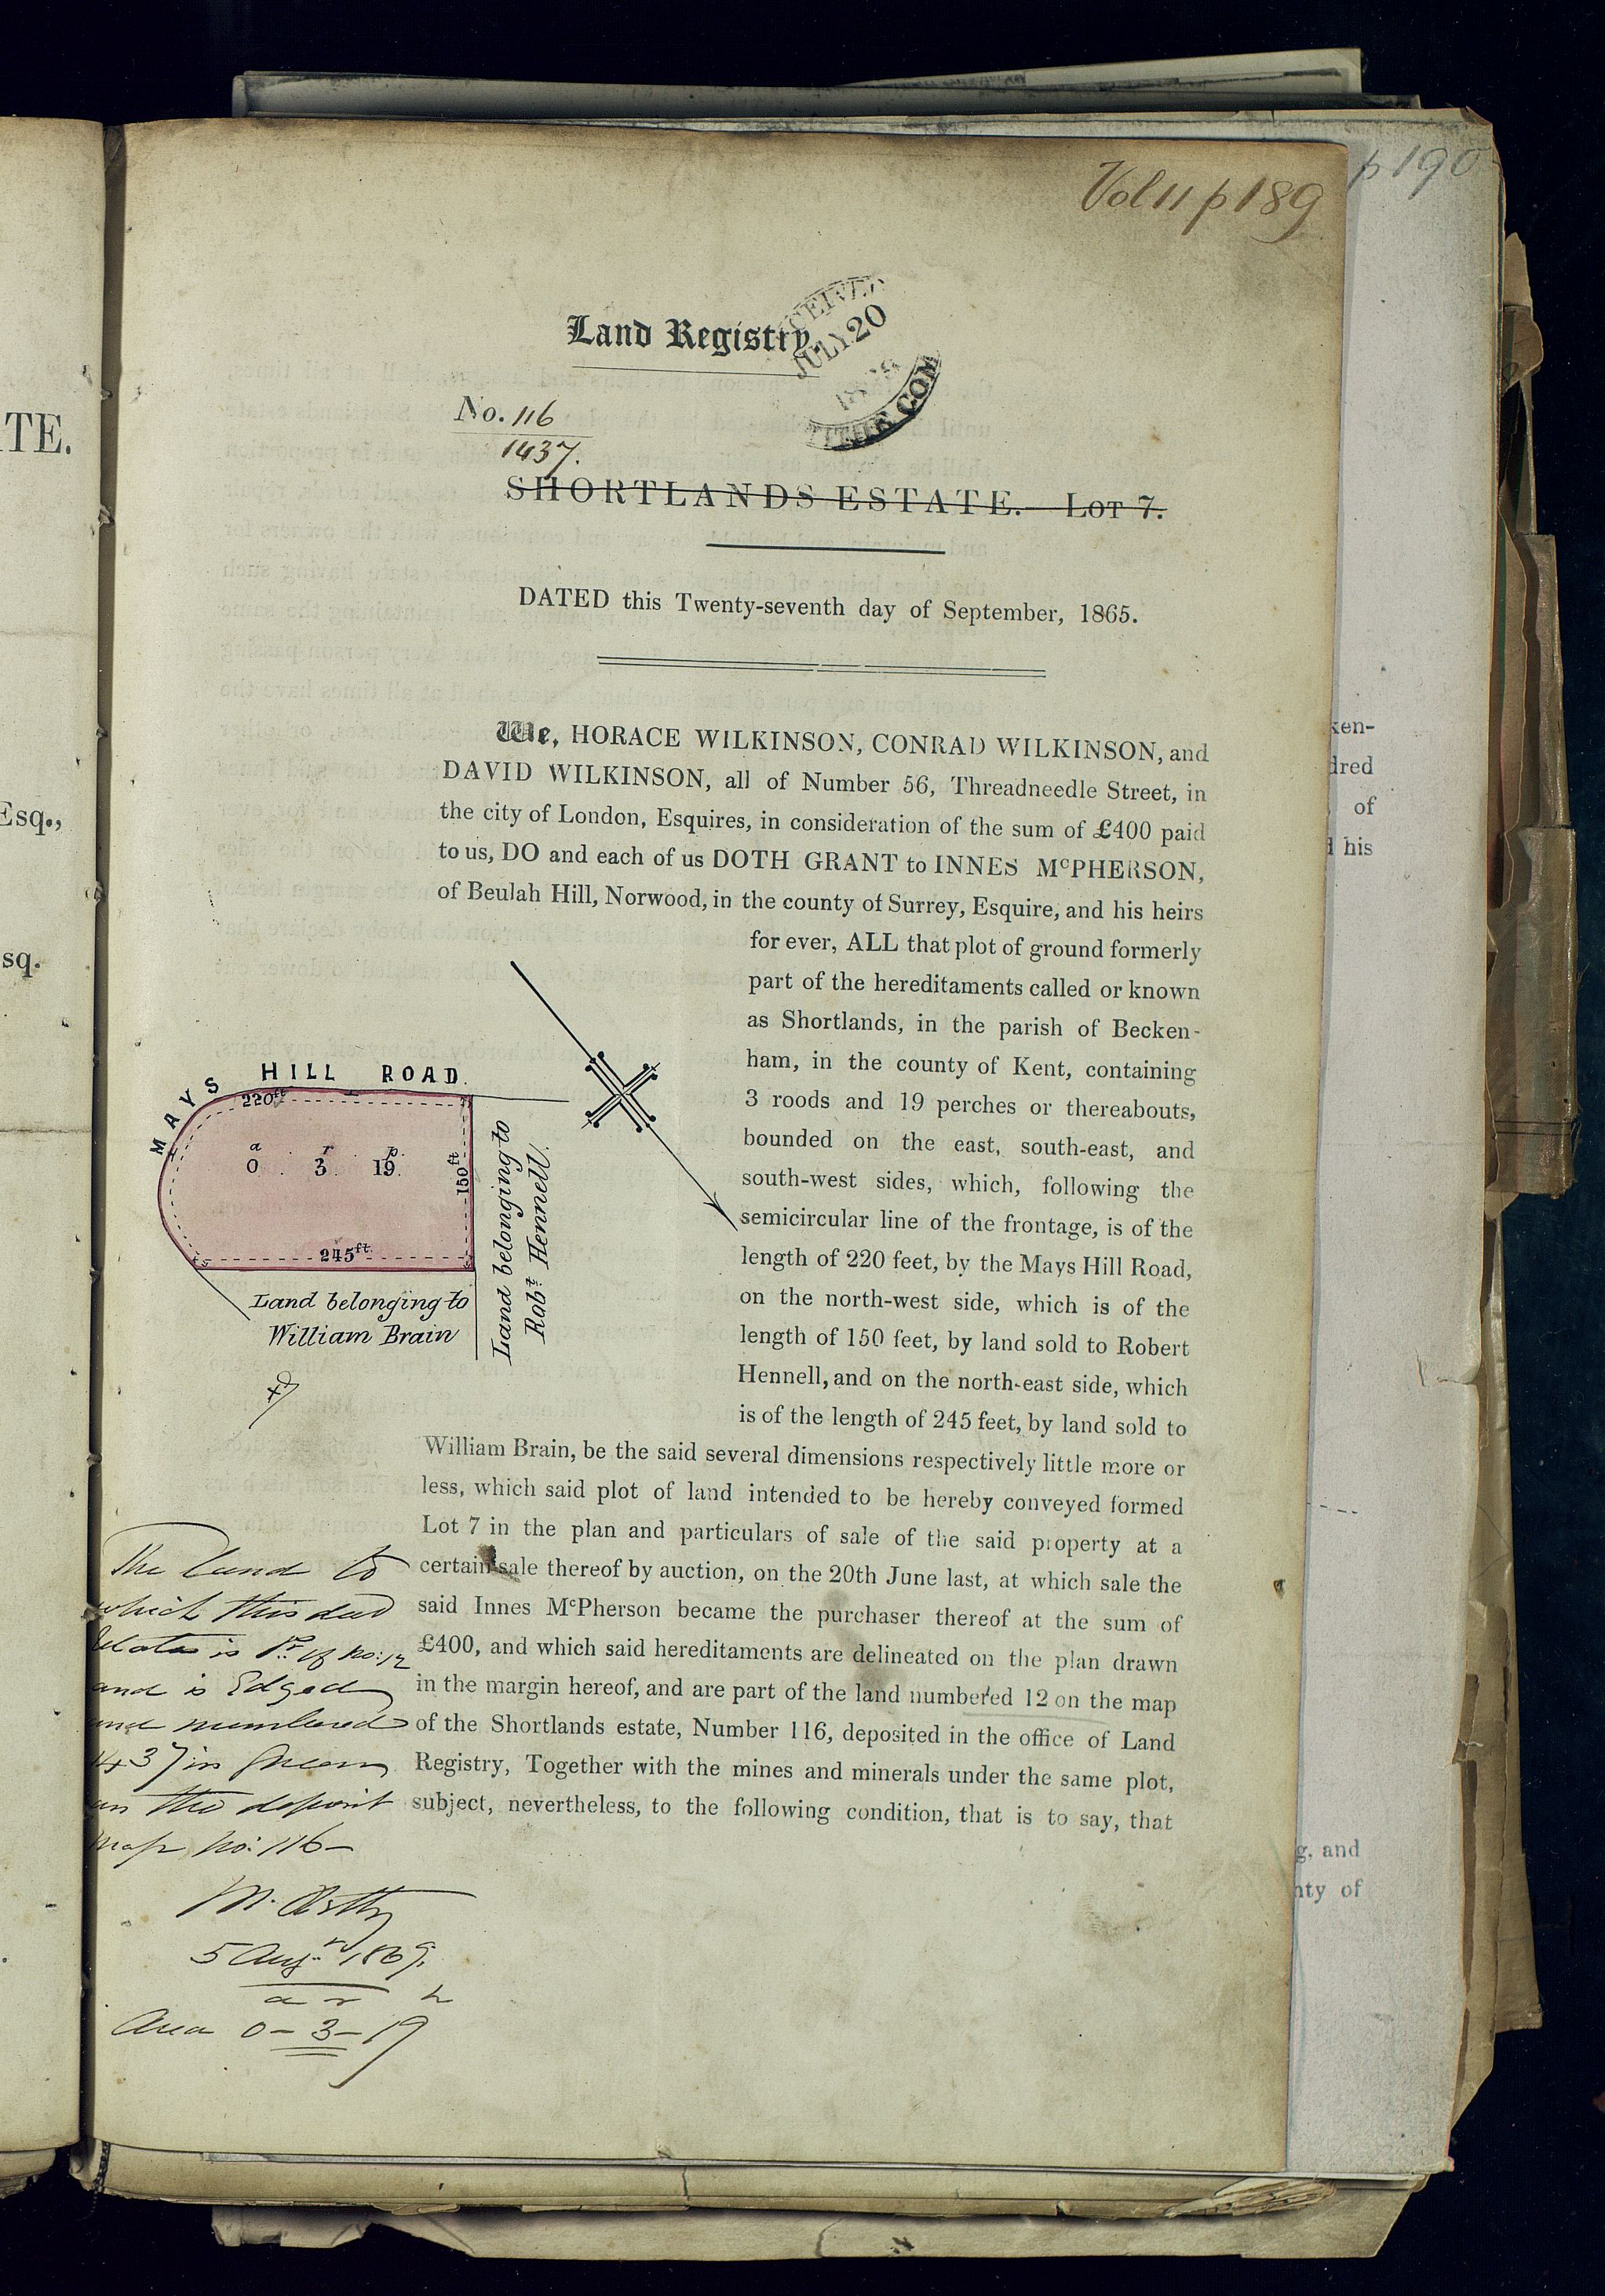 Vol 11 p 189
p 190
Land Registry.
JULY 20
TITHE COM
No. 116
1437.
SHORTLANDS ESTATE.—LOT 7.
DATED this Twenty-seventh day of September, 1865.
We, HORACE WILKINSON, CONRAD WILKINSON, and
DAVID WILKINSON, all of Number 56, Threadneedle Street, in
the city of London, Esquires, in consideration of the sum of £400 paid
to us, DO and each of us DOTH GRANT to INNES McPHERSON,
of Beulah Hill, Norwood, in the county of Surrey, Esquire, and his heirs
for ever, ALL that plot of ground formerly
part of the hereditaments called or known
as Shortlands, in the parish of Becken-
ham, in the county of Kent, containing
3 roods and 19 perches or thereabouts,
bounded on the east, south-east, and
south-west sides, which, following the
semicircular line of the frontage, is of the
length of 220 feet, by the Mays Hill Road,
on the north-west side, which is of the
length of 150 feet, by land sold to Robert
Hennell, and on the north-east side, which
is of the length of 245 feet, by land sold to
William Brain, be the said several dimensions respectively little more or
less, which said plot of land intended to be hereby conveyed formed
Lot 7 in the plan and particulars of sale of the said property at a
certain sale thereof by auction, on the 20th June last, at which sale the
said Innes McPherson became the purchaser thereof at the sum of
£400, and which said hereditaments are delineated on the plan drawn
in the margin hereof, and are part of the land numbered 12 on the map
of the Shortlands estate, Number 116, deposited in the office of Land
Registry, Together with the mines and minerals under the same plot,
subject, nevertheless, to the following condition, that is to say, that
MAYS HILL ROAD.
220ft
a r p.
0 . 3 . 19.
150ft
245ft
Land belonging to
William Brain
Land belonging to
Robt. Hennell.
The land to
which this deed
relates is Pt. of No: 12
and is Edged
and numbered
1437 in Green
on the deposit
map No: 116–
5 Augt 1869.
a r p
Area 0 – 3 – 19
TE.
Esq.,
sq.
ken-
dred
of
his
g, and
nty of